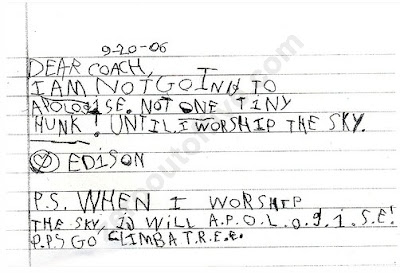 9-20-06
DEAR COACH,
I AM NOT GOINN TO
APOLOGISE. NOT ONE TINY
HUNK! UNTIL I WORSHIP THE SKY.
EDISON
P.S. WHEN I WORSHIP
THE SKY, I WILL A.P.O.L.O.g.i.S.E!
P.PS GO CLIMB A T.R.E.E.